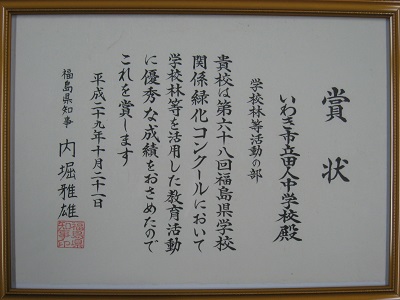 賞状
いわき市立田人中学校殿
学校林等活動の部
貴校は第六十八回福島県学校
関係緑化コンクールにおいて
学校林等を活用した教育活動
に優秀な成績をおさめたので
これを賞します
平成二十九年十月二十一日
福島県知事 内堀雅雄